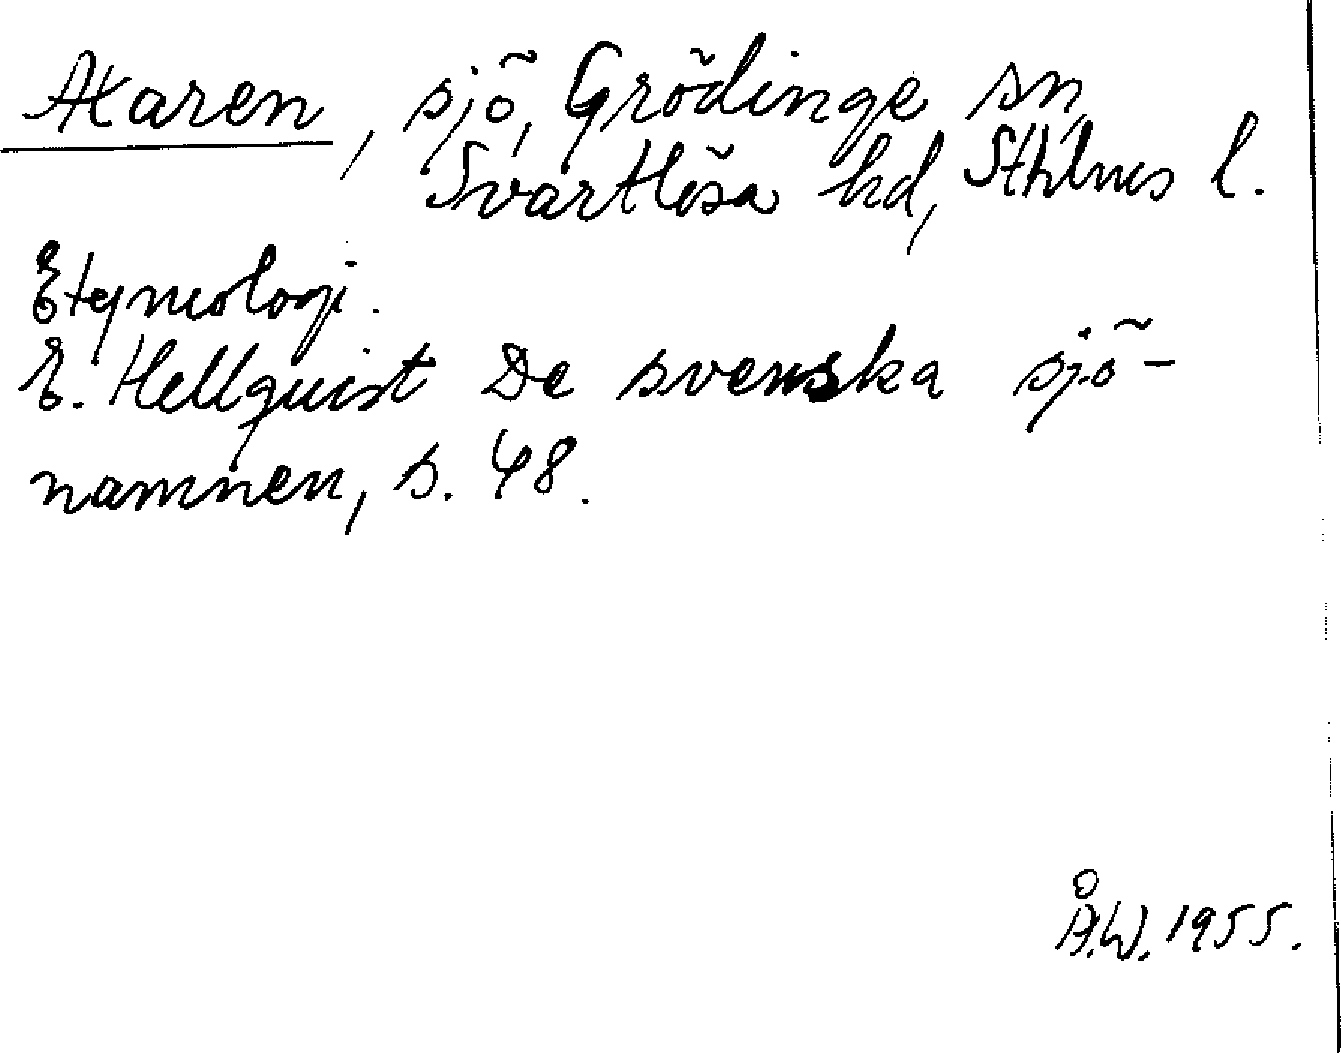 Axaren, sjö, Grödinge sn,
Svartlösa hd, Sthlms l.
Etymologi.
E. Hellquist De svenska sjö-
namnen, s. 48.
Å.W. 1955.